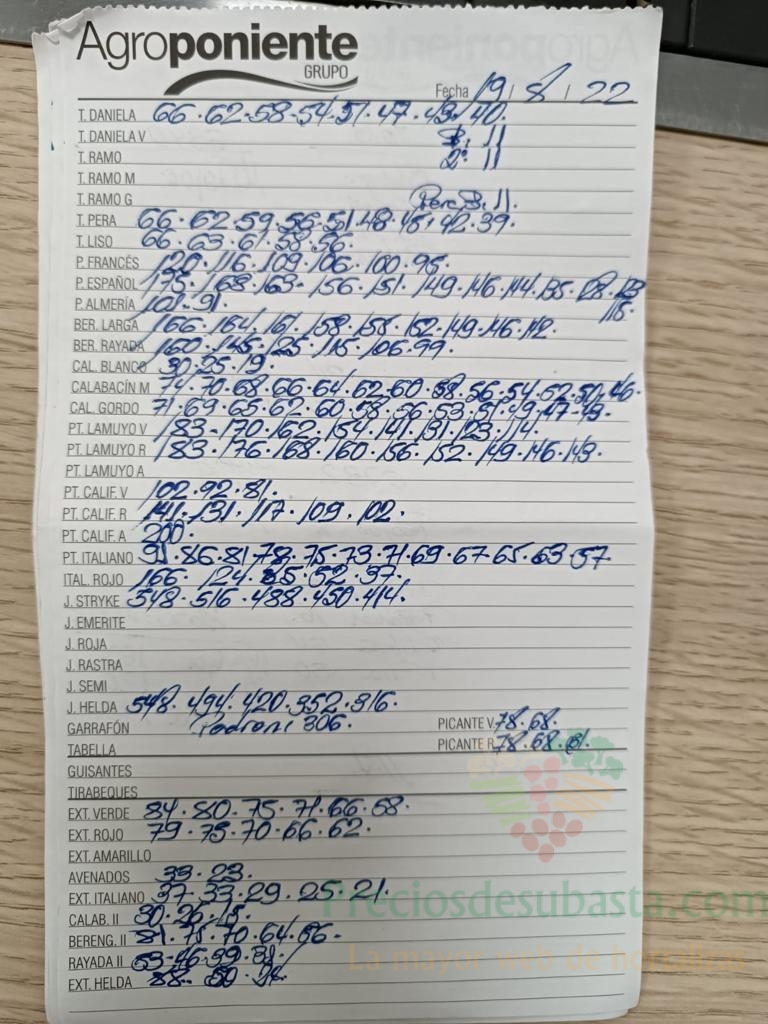 Agroponiente
GRUPO
Fecha 19 / 8 / 22
T. DANIELA 66. 62. 58. 54. 51. 47. 43. 40.
T. DANIELA V
T. RAMO
T. RAMO M
T. RAMO G
T. PERA 66. 62. 59. 56. 51. 48. 45. 42. 39.
T. LISO 66. 63. 61. 58. 56.
P. FRANCÉS 120. 116. 109. 106. 100. 95.
P. ESPAÑOL 175. 168. 163. 156. 151. 149. 146. 144. 135. 128. 123
115.
P. ALMERÍA 101. 91.
BER. LARGA 166. 164. 161. 158. 155. 152. 149. 146. 142.
BER. RAYADA 160. 145. 125. 115. 106. 99.
CAL. BLANCO 30. 25. 19.
CALABACÍN M 74. 70. 68. 66. 64. 62. 60. 58. 56. 54. 52. 50. 46.
CAL. GORDO 71. 69. 65. 62. 60. 58. 56. 53. 51. 49. 47. 43.
PT. LAMUYO V 183. 170. 162. 154. 141. 131. 123. 114.
PT. LAMUYO R 183. 176. 168. 160. 156. 152. 149. 146. 143.
PT. LAMUYO A
PT. CALIF. V 102. 92. 81.
PT. CALIF. R 141. 131. 117. 109. 102.
PT. CALIF. A 200.
PT. ITALIANO 91. 86. 81. 78. 75. 73. 71. 69. 67. 65. 63. 57
ITAL. ROJO 166. 124. 52. 37.
J. STRYKE 548. 516. 488. 450. 414.
J. EMERITE
J. ROJA
J. RASTRA
J. SEMI
J. HELDA 548. 494. 420. 352. 316.
GARRAFÓN Padroni 306. PICANTE V. 78. 68.
TABELLA PICANTE R. 78. 68. 61.
GUISANTES
TIRABEQUES
EXT. VERDE 84. 80. 75. 71. 66. 58.
EXT. ROJO 79. 75. 70. 66. 62.
EXT. AMARILLO
AVENADOS 33. 23.
EXT. ITALIANO 37. 33. 29. 25. 21.
CALAB. II 30. 26. 15.
BERENG. II 81. 75. 70. 64. 56.
RAYADA II 53. 46. 39. 31.
EXT. HELDA
Preciosdesubasta.com
La mayor web de